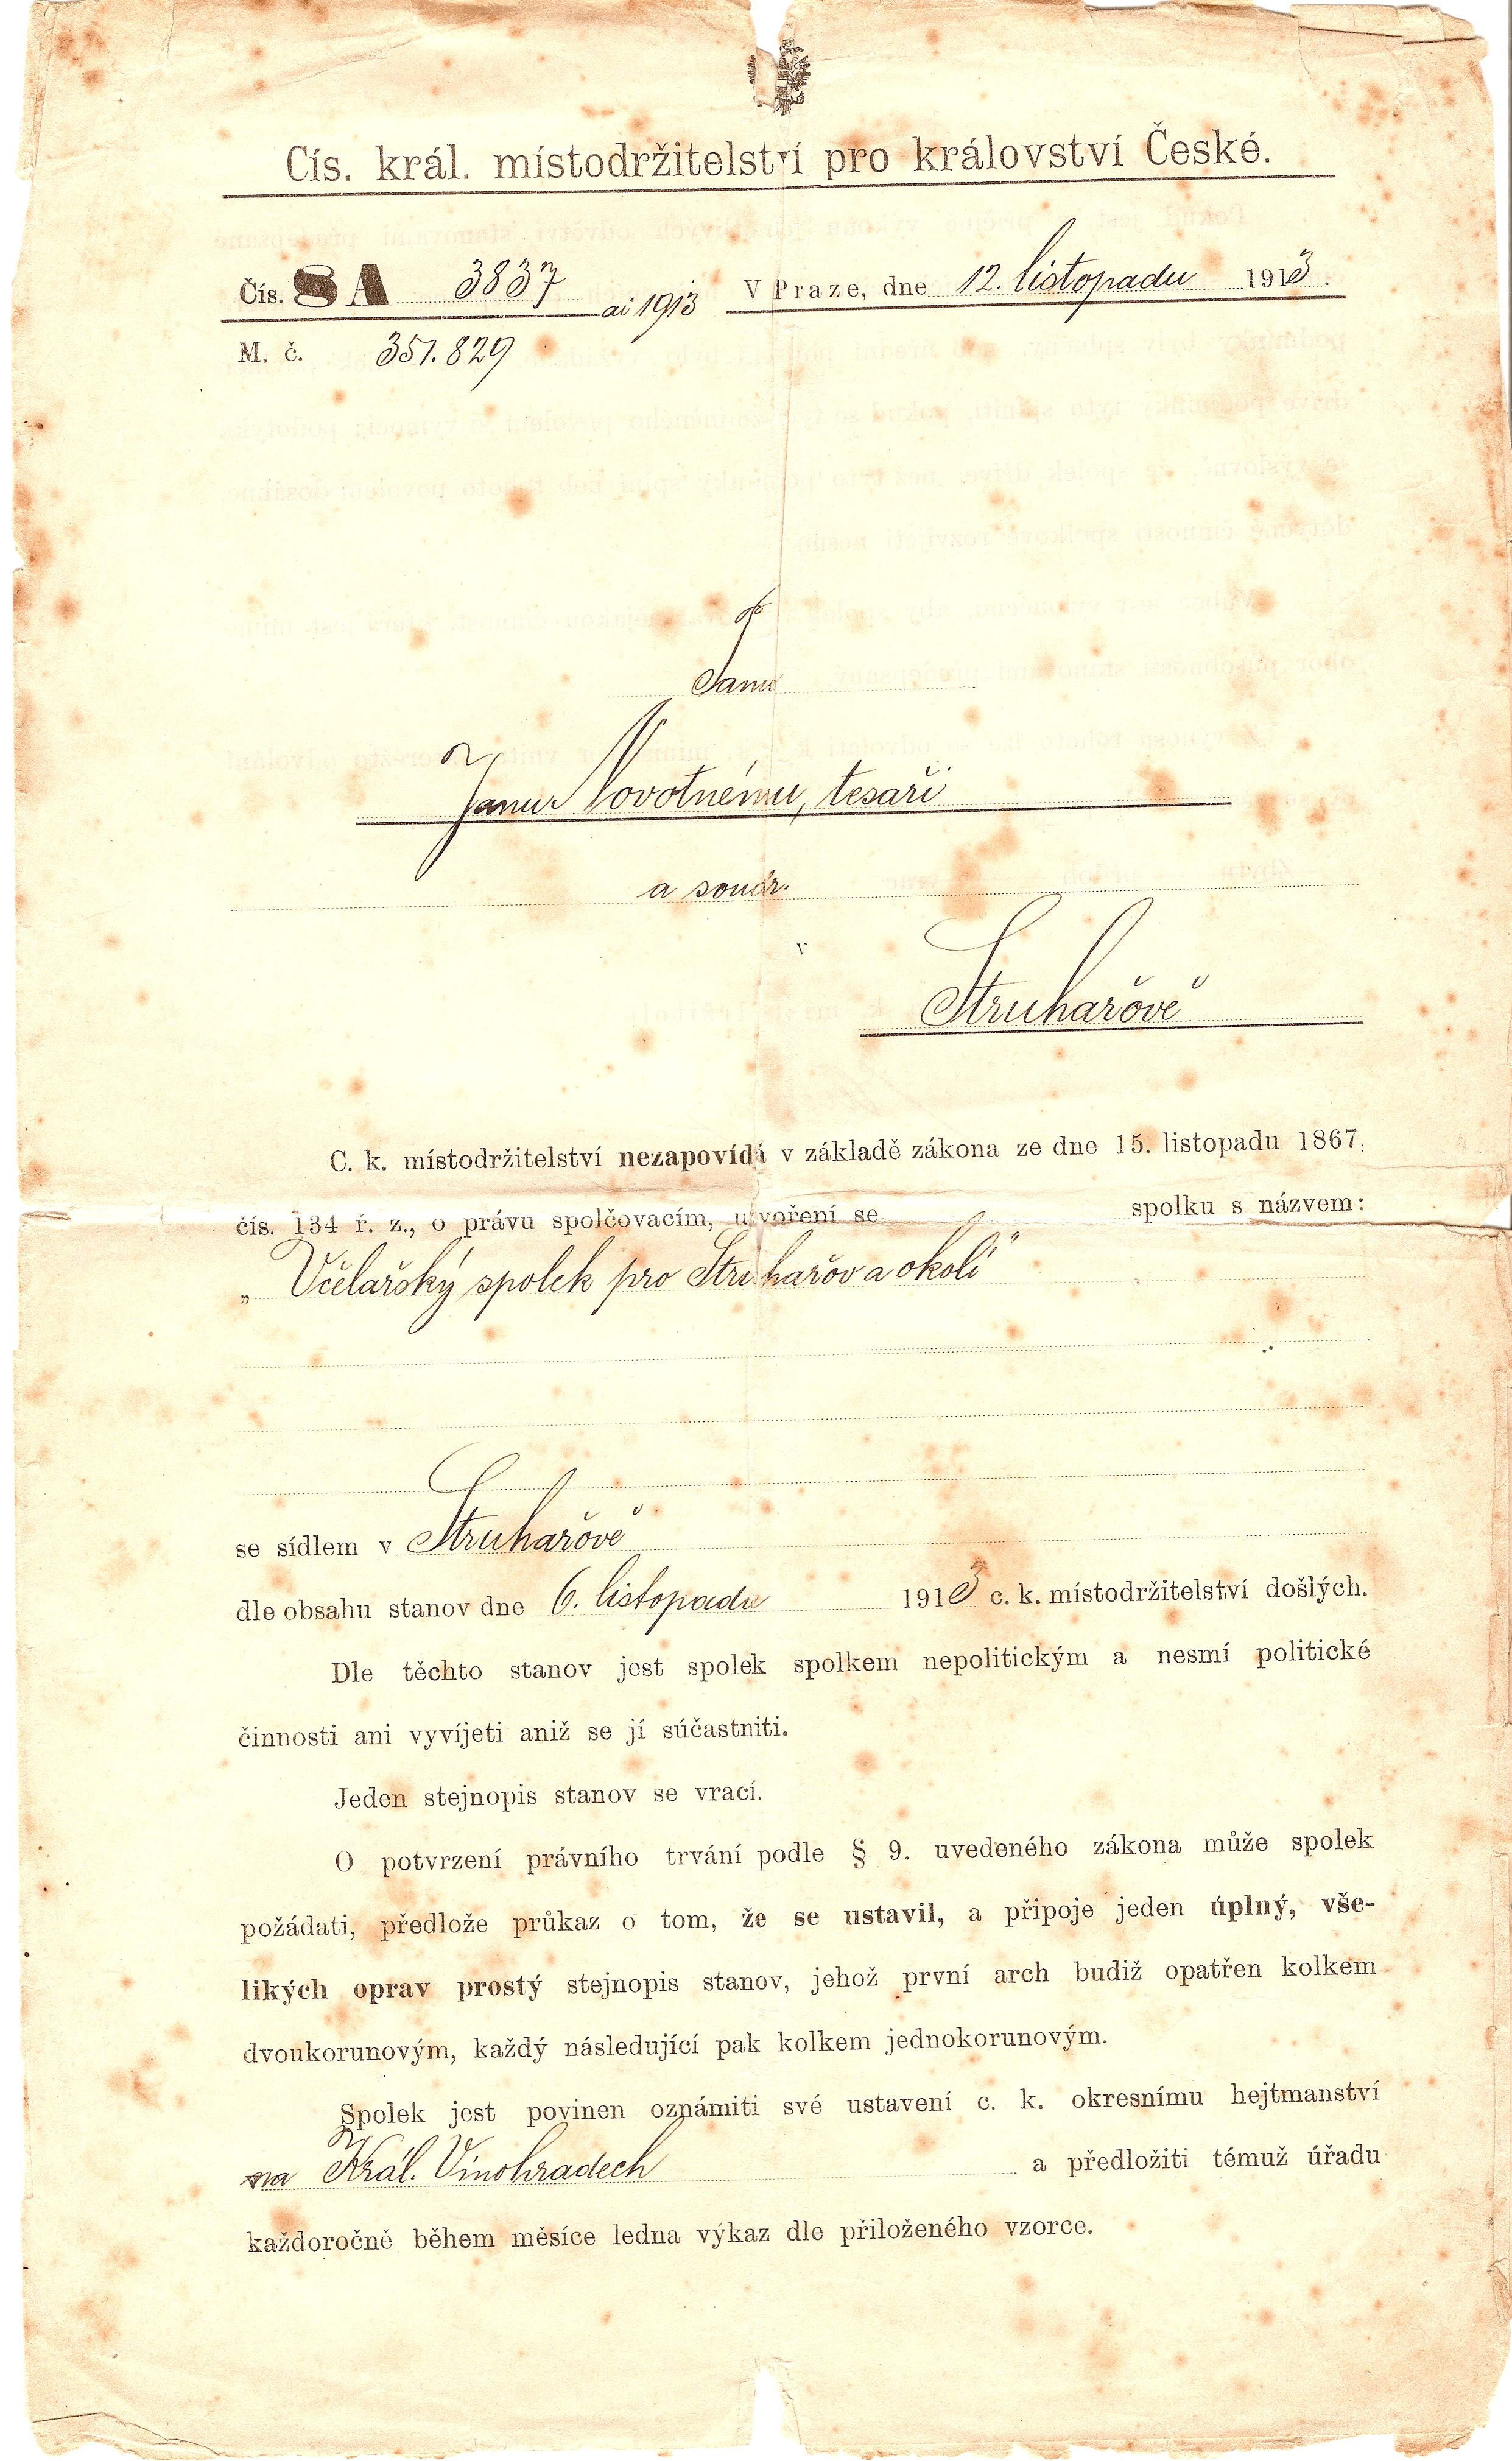 Cís. král. místodržitelství pro království České.
Čís. 8 A 3837 ai 1913 V Praze, dne 12. listopadu 1913.
M. č. 351.829
Panu
Janu Novotnému, tesaři
a soudr.
v
Struhařově
C. k. místodržitelství nezapovídá v základě zákona ze dne 15. listopadu 1867,
čís. 134 ř. z., o právu spolčovacím, utvoření se spolku s názvem:
„Včelařský spolek pro Struhařov a okolí"
se sídlem v Struhařově
dle obsahu stanov dne 6. listopadu 1913 c. k. místodržitelství došlých.
Dle těchto stanov jest spolek spolkem nepolitickým a nesmí politické
činnosti ani vyvíjeti aniž se jí súčastniti.
Jeden stejnopis stanov se vrací.
O potvrzení právního trvání podle § 9. uvedeného zákona může spolek
požádati, předlože průkaz o tom, že se ustavil, a připoje jeden úplný, vše-
likých oprav prostý stejnopis stanov, jehož první arch budiž opatřen kolkem
dvoukorunovým, každý následující pak kolkem jednokorunovým.
Spolek jest povinen oznámiti své ustavení c. k. okresnímu hejtmanství
na Král. Vinohradech a předložiti témuž úřadu
každoročně během měsíce ledna výkaz dle přiloženého vzorce.